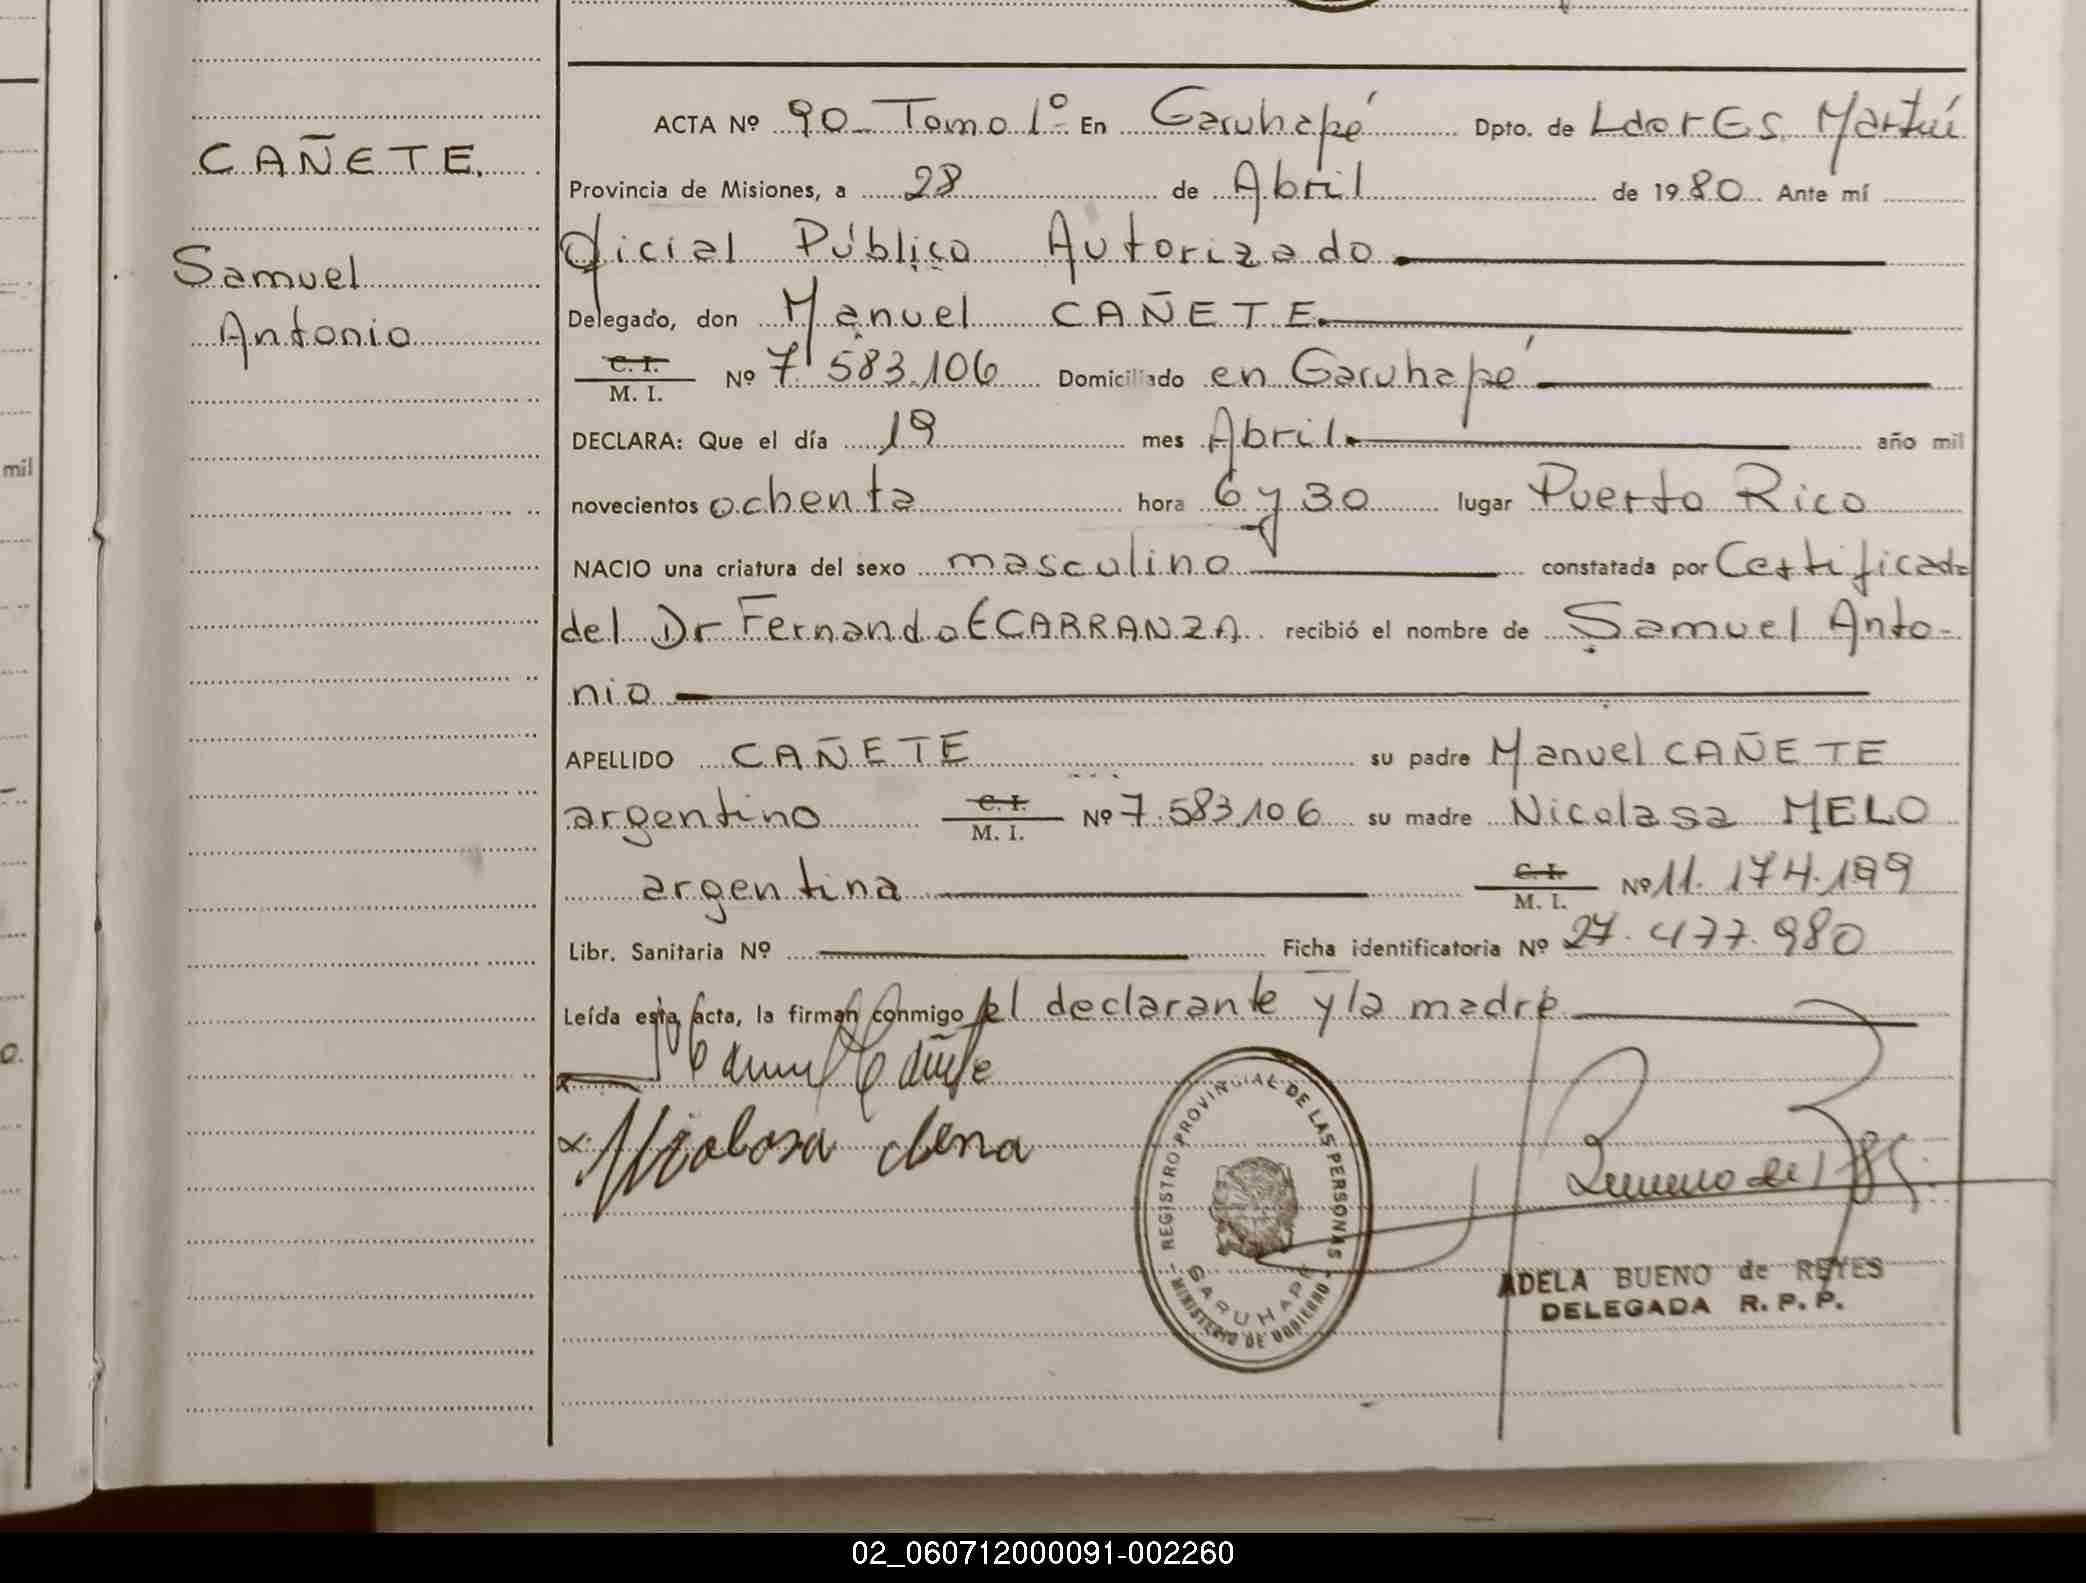 CAÑETE.
Samuel
Antonio
ACTA Nº 90 Tomo 1º En Garuhapé Dpto. de Ldor G S. Martín
Provincia de Misiones, a 28 de Abril de 1980 Ante mí
Oficial Público Autorizado
Delegado, don Manuel CAÑETE
C. I.
M. I. Nº 7.583.106 Domiciliado en Garuhapé
DECLARA: Que el día 19 mes Abril año mil
novecientos ochenta hora 6 y 30 lugar Puerto Rico
NACIO una criatura del sexo masculino constatada por Certificado
del Dr Fernando E CARRANZA recibió el nombre de Samuel Anto-
nio
APELLIDO CAÑETE su padre Manuel CAÑETE
argentino C. I.
M. I. Nº 7.583.106 su madre Nicolasa MELO
argentina C. I.
M. I. Nº 11.174.199
Libr. Sanitaria Nº Ficha identificatoria Nº 27.477.980
Leída esta acta, la firman conmigo el declarante y la madre
Manuel Cañete
Nicolasa
REGISTRO PROVINCIAL DE LAS PERSONAS
GARUHAPE
MINISTERIO DE GOBIERNO
ADELA BUENO de REYES
DELEGADA R. P. P.
mil
o.
02_060712000091-002260